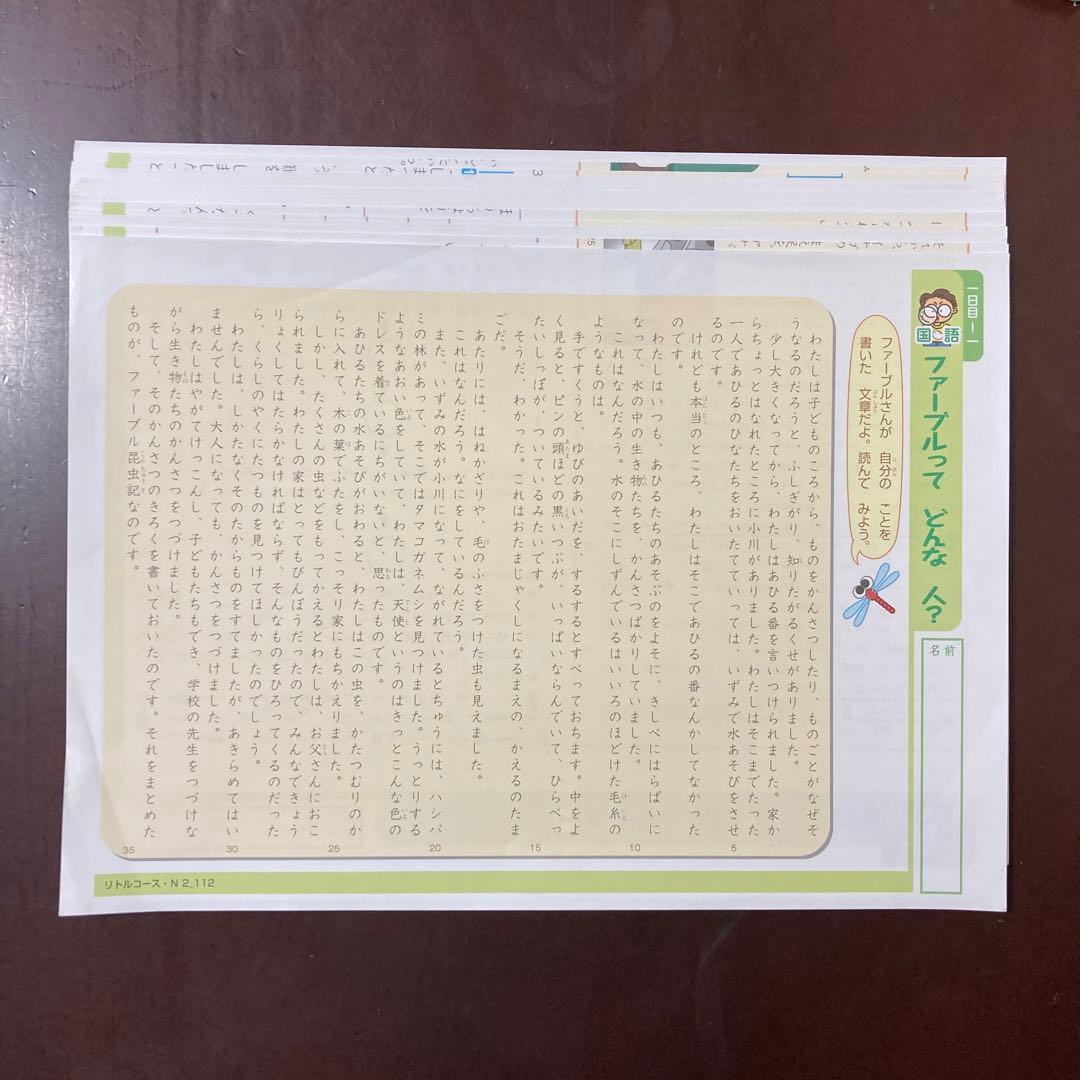 一日目ー1
国語
ファーブルって どんな 人?
名前
ファーブルさんが 自分の ことを
書いた 文章だよ。読んで みよう。
わたしは子どものころから、ものをかんさつしたり、ものごとがなぜそ
うなるのだろうと、ふしぎがり、知りたがるくせがありました。
少し大きくなってから、わたしはあひる番を言いつけられました。家か
らちょっとはなれたところに小川がありました。わたしはそこまでたった
一人であひるのひなたちをおいたてていっては、いずみで水あそびをさせ
るのです。
けれども本当のところ、わたしはそこであひるの番なんかしてなかった
のです。
わたしはいつも、あひるたちのあそぶのをよそに、きしべにはらばいに
なって、水の中の生き物たちを、かんさつばかりしていました。
これはなんだろう。水のそこにしずんでいるはいいろのほどけた毛糸の
ようなものは。
手ですくうと、ゆびのあいだを、するするとすべっておちます。中をよ
く見ると、ピンの頭ほどの黒いつぶが、いっぱいならんでいて、ひらべっ
たいしっぽが、ついているみたいです。
そうだ、わかった。これはおたまじゃくしになるまえの、かえるのたま
ごだ。
あたりには、はねかざりや、毛のふさをつけた虫も見えました。
これはなんだろう。なにをしているんだろう。
また、いずみの水が小川になって、ながれているとちゅうには、ハシバ
ミの林があって、そこではタマコガネムシを見つけました。うっとりする
ようなあおい色をしていて、わたしは、天使というのはきっとこんな色の
ドレスを着ているにちがいないと、思ったものです。
あひるたちの水あそびがおわると、わたしはこの虫を、かたつむりのか
らに入れて、木の葉でふたをし、こっそり家にもちかえりました。
しかし、たくさんの虫などをもってかえるとわたしは、お父さんにおこ
られました。わたしの家はとってもびんぼうだったので、みんなできょう
りょくしてはたらかなければならず、そんなものをひろってくるのだった
ら、くらしのやくにたつものを見つけてほしかったのでしょう。
わたしは、しかたなくそのたからものをすてましたが、あきらめてはい
ませんでした。大人になっても、かんさつをつづけました。
わたしはやがてけっこんし、子どもたちもでき、学校の先生をつづけな
がら生き物たちのかんさつをつづけました。
そして、そのかんさつのきろくを書いておいたのです。それをまとめた
ものが、ファーブル昆虫記なのです。
5
10
15
20
25
30
35
リトルコース・N2_112